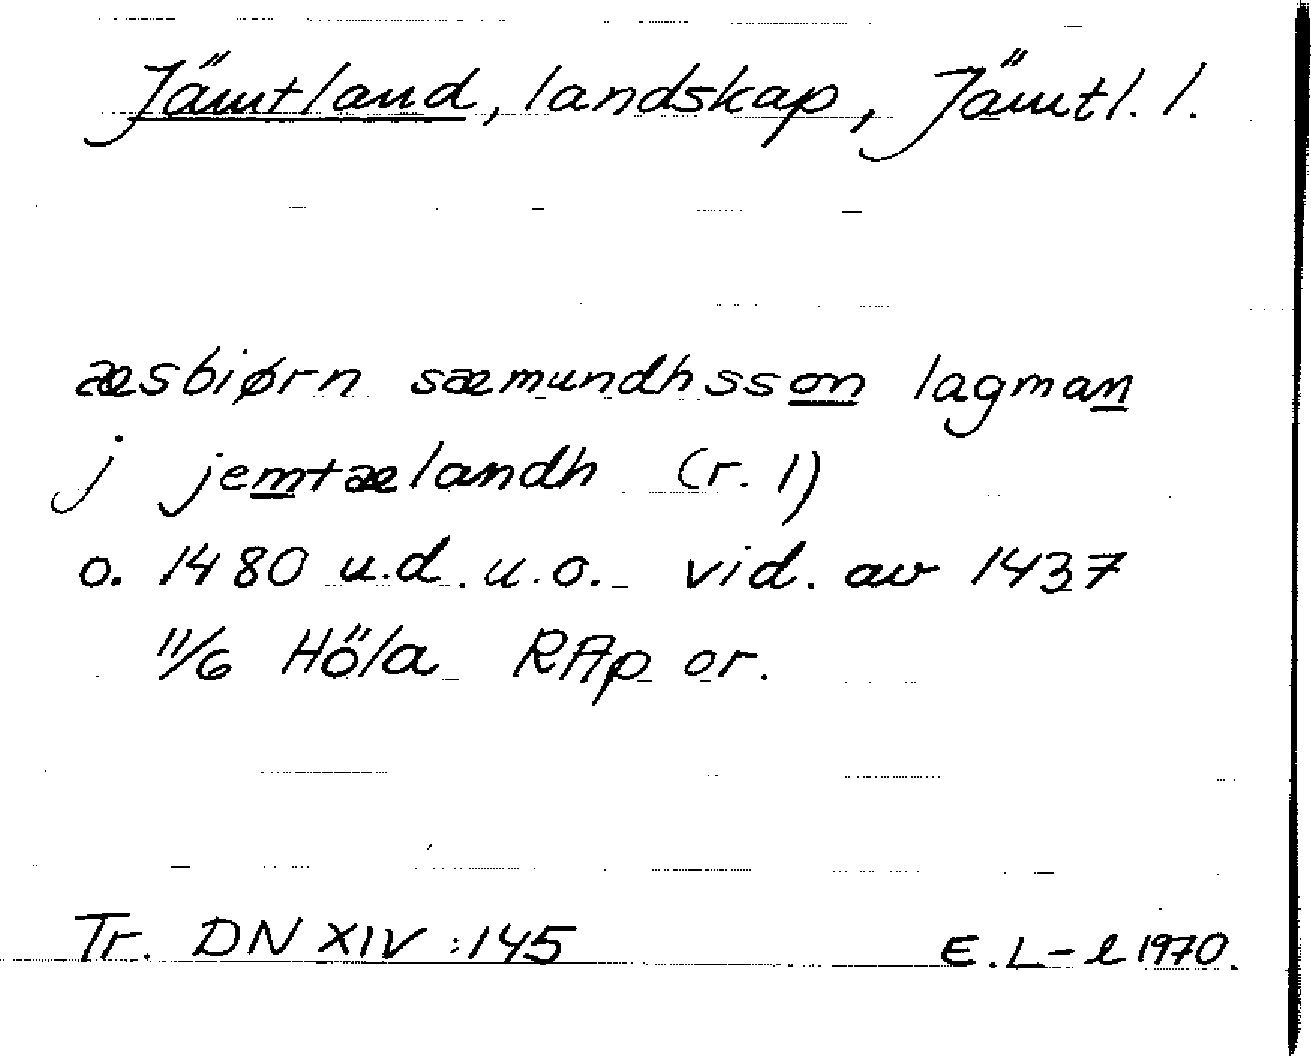 Jämtland, landskap, Jämtl. l.
æsbiørn sæmundhsson lagman
j jemtælandh (r. 1)
o. 1480 u.d. u.o. vid. av 1437
11/6 Höla RAp or.
Tr. DN XIV :145 E.L-l 1970.